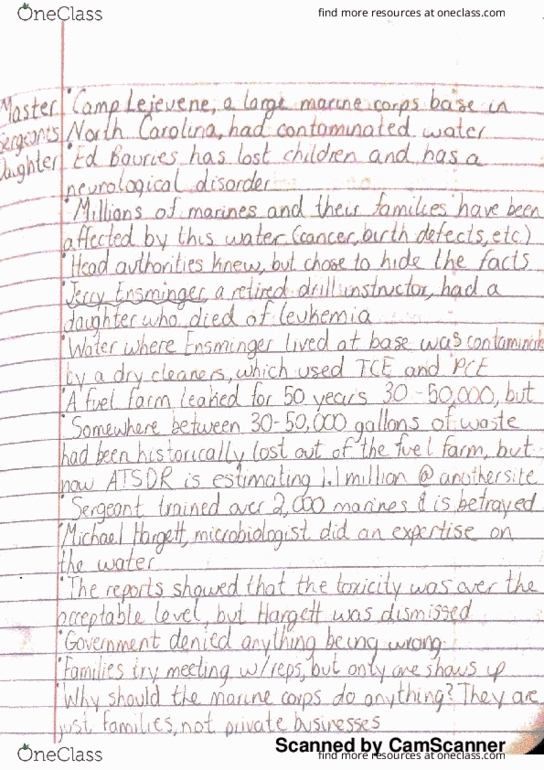 OneClass
find more resources at oneclass.com
Master
Sergeants
Daughter
•Camp Lejevene, a large marine corps base in
North Carolina, had contaminated water
•Ed Bauries has lost children and has a
neurological disorder
•Millions of marines and their families have been
affected by this water (cancer, birth defects, etc.)
•Head authorities knew, but chose to hide the facts
•Jerry Ensminger, a retired drill instructor, had a
daughter who died of leukemia
•Water where Ensminger lived at base was contamin
by a dry cleaners, which used TCE and PCE
•A fuel farm leaked for 50 years 30-50,000, but
•Somewhere between 30-50,000 gallons of waste
had been historically lost out of the fuel farm, but
now ATSDR is estimating 1.1 million @ another site
•Sergeant trained over 2,000 marines & is betrayed
•Michael Hargett, microbiologist did an expertise on
the water
•The reports showed that the toxicity was over the
acceptable level, but Hargett was dismissed
•Government denied anything being wrong.
•Families try meeting w/reps, but only one shows up
•Why should the marine corps do anything? They are
just families, not private businesses
Scanned by CamScanner
OneClass
find more resources at oneclass.com